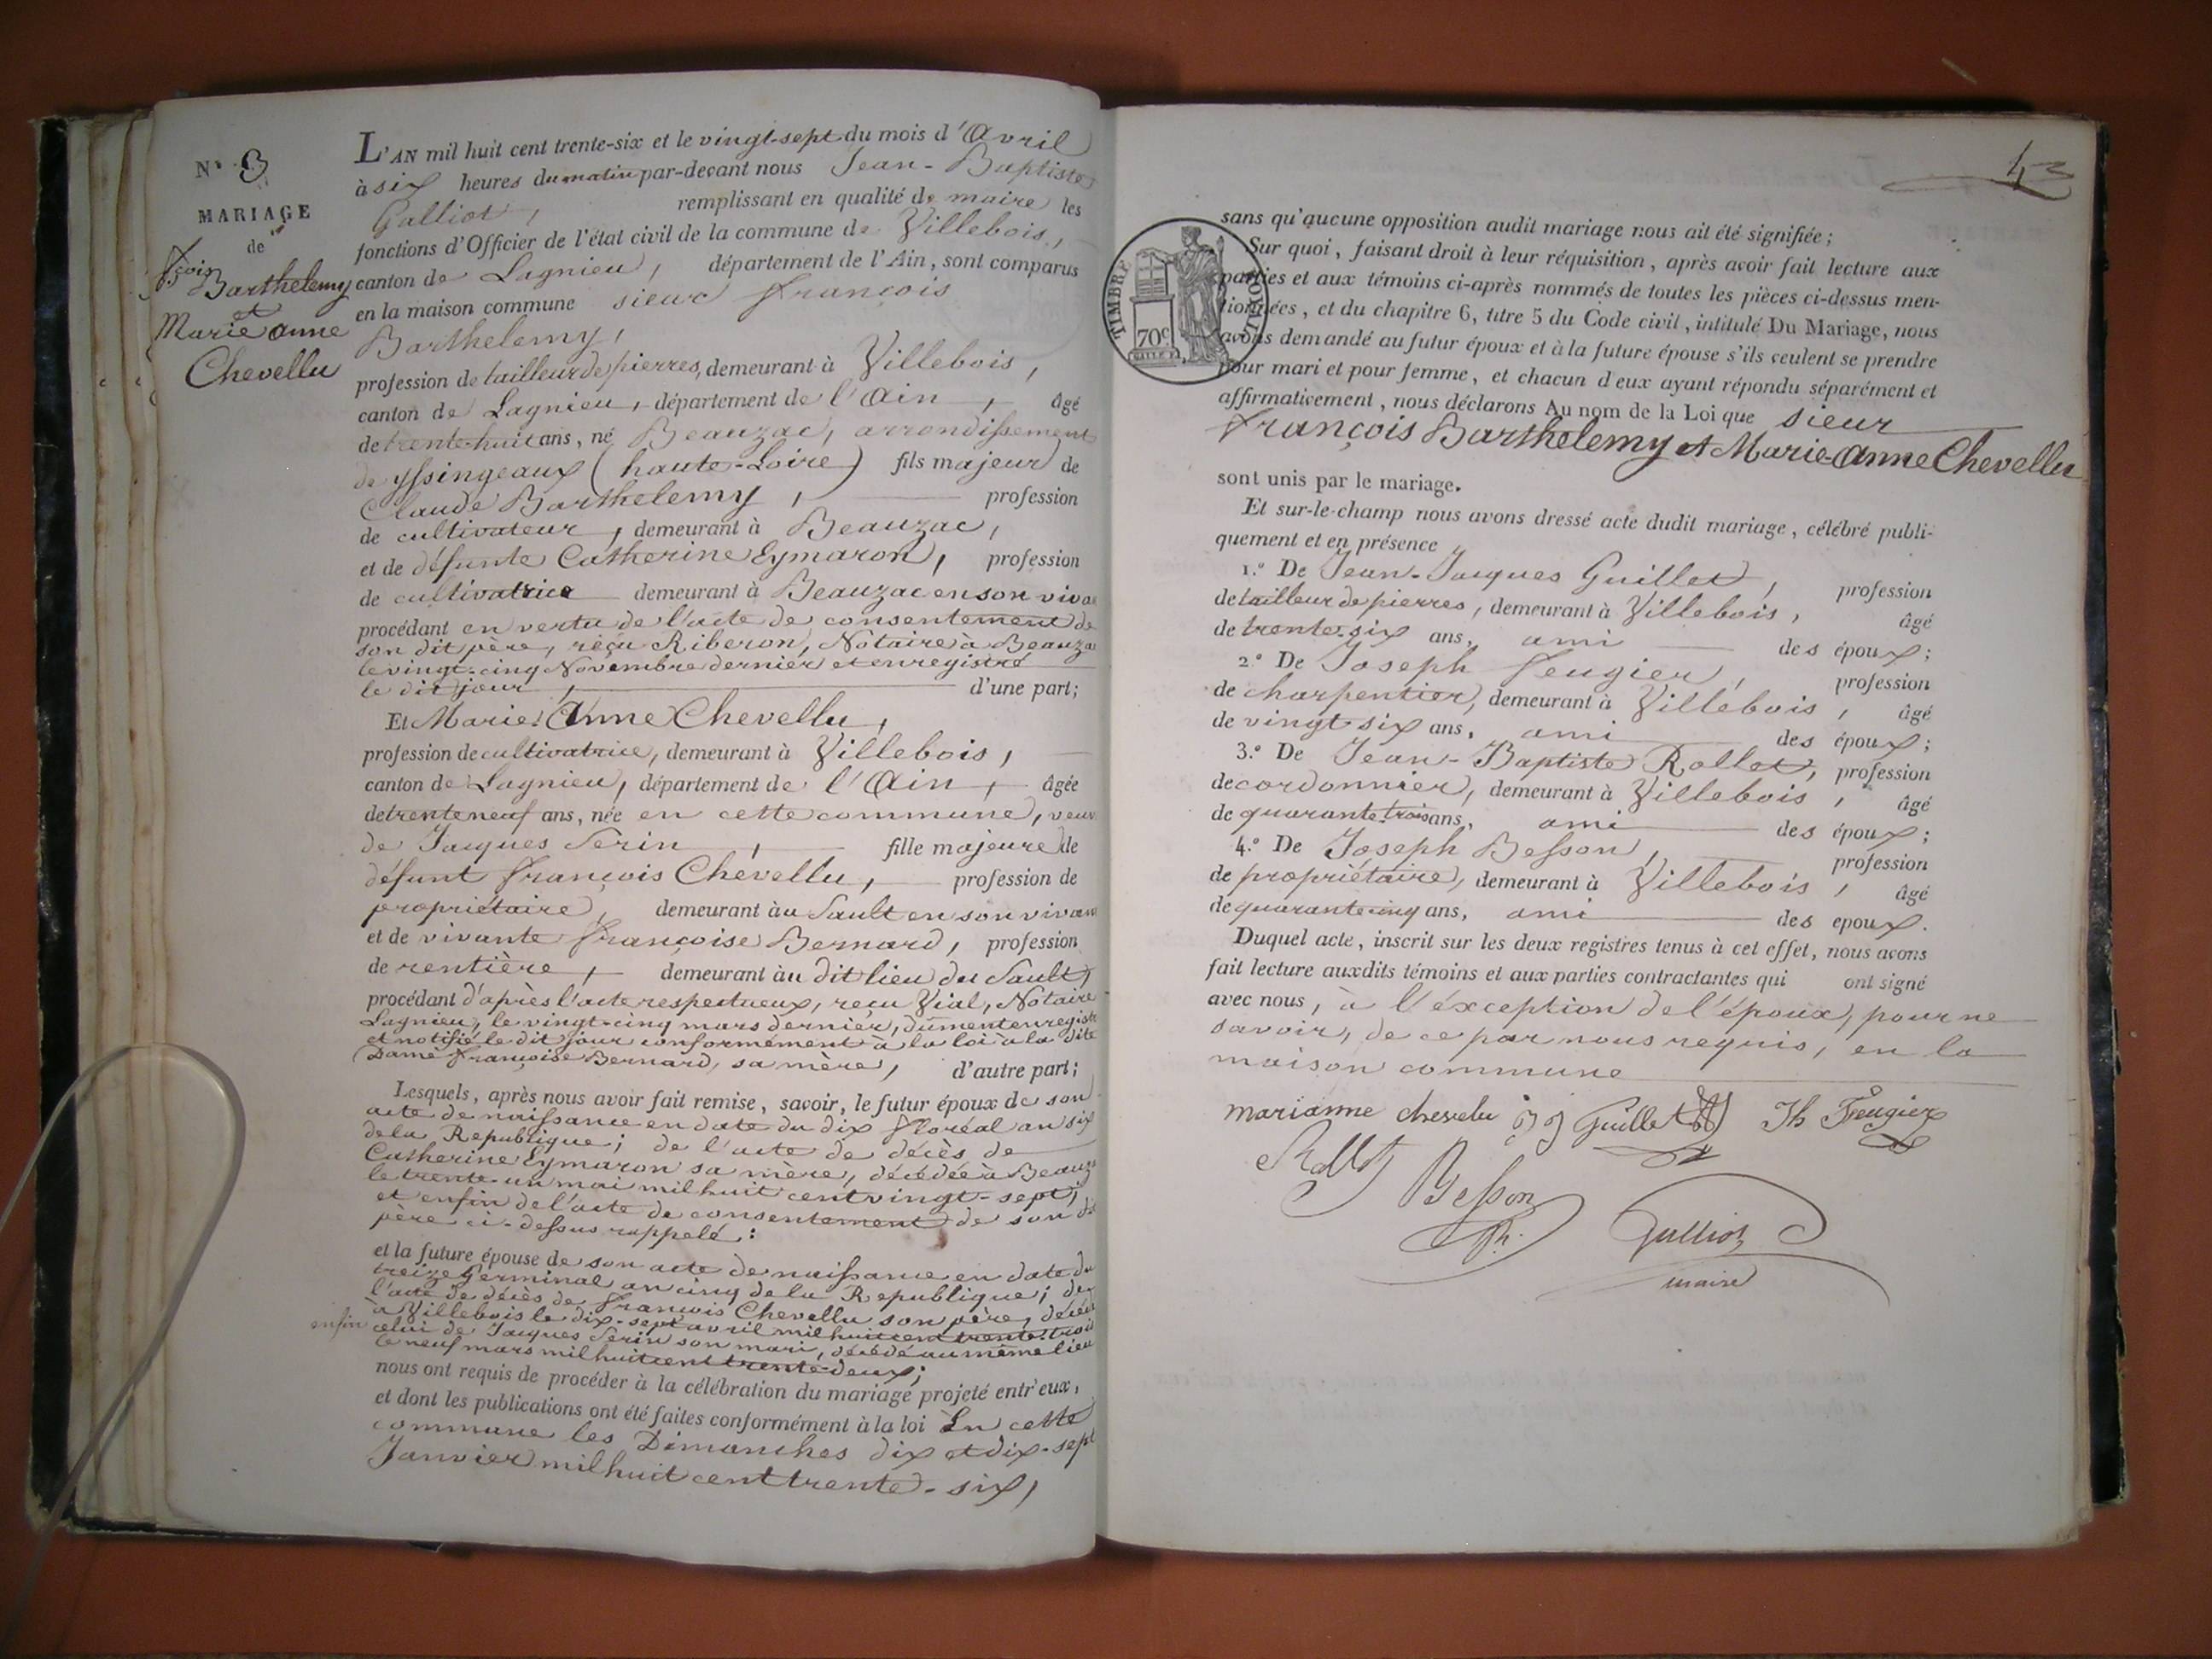 N.o 8
MARIAGE
de
fçois
Barthelemy
et
Marie anne
Chevellu
L'AN mil huit cent trente-six et le vingt-sept du mois d'Avril
à six heures du matin par-devant nous Jean-Baptiste
Galliot, remplissant en qualité de maire les
fonctions d'Officier de l'état civil de la commune de Villebois,
canton de Lagnieu, département de l'Ain, sont comparus
en la maison commune sieur françois
Barthelemy,
profession de tailleur de pierres, demeurant à Villebois,
canton de Lagnieu, département de l'Ain, âgé
de trente-huit ans, né Beauzac, arrondissement
de yssingeaux (haute-Loire) fils majeur de
Claude Barthelemy, profession
de cultivateur, demeurant à Beauzac,
et de défunte Catherine Eymaron, profession
de cultivatrice demeurant à Beauzac en son viva
procédant en vertu de l'acte de consentement de
son dit père, reçu Riberon, Notaire à Beauza
le vingt-cinq Novembre dernier et enregistré
le dit jour, d'une part;
Et Marie Anne Chevellu,
profession de cultivatrice, demeurant à Villebois,
canton de Lagnieu, département de l'Ain, âgée
de trente neuf ans, née en cette commune, veuv
de Jacques Serin, fille majeure de
défunt françois Chevellu, profession de
propriétaire, demeurant àu Sault en son vivan
et de vivante françoise Bernard, profession
de rentière, demeurant àu dit lieu du Sault,
procédant d'après l'acte respectueux, reçu Vial, Notaire
Lagnieu, le vingt-cinq mars dernier, dument enregist
et notifié le dit jour conformément à la loi à la dite
Dame françoise Bernard, sa mère, d'autre part;
Lesquels, après nous avoir fait remise, savoir, le futur époux de son
acte de naissance en date du dix floréal an six
de la Republique; de l'acte de décès de
Catherine Eymaron sa mère, décédée à Beauza
le trente-un mai mil huit cent vingt-sept;
et enfin de l'acte de consentement de son dit
père ci-dessus rappelé:
et la future épouse de son acte de naissance en date du
treize Germinal an cinq de la Republique; de
l'acte de décès de françois Chevellu son père, décédé
à Villebois le dix-sept avril mil huit cent trente-trois
enfin celui de Jacques Serin son mari, décédé au même lieu
le neuf mars mil huit cent trente-deux;
nous ont requis de procéder à la célébration du mariage projeté entr'eux,
et dont les publications ont été faites conformément à la loi En cette
commune les Dimanches dix et dix-sept
Janvier mil huit cent trente-six,
43
TIMBRE ROYAL
70c
sans qu'aucune opposition audit mariage nous ait été signifiée;
Sur quoi, faisant droit à leur réquisition, après avoir fait lecture aux
parties et aux témoins ci-après nommés de toutes les pièces ci-dessus men-
tionnées, et du chapitre 6, titre 5 du Code civil, intitulé Du Mariage, nous
avons demandé au futur époux et à la future épouse s'ils veulent se prendre
pour mari et pour femme, et chacun d'eux ayant répondu séparément et
affirmativement, nous déclarons Au nom de la Loi que sieur
françois Barthelemy et Marie-Anne Chevellu
sont unis par le mariage.
Et sur-le-champ nous avons dressé acte dudit mariage, célébré publi-
quement et en présence
1.o De Jean-Jacques Guillet, profession
de tailleur de pierres, demeurant à Villebois, âgé
de trente-six ans, ami des époux;
2.o De Joseph feugier, profession
de charpentier, demeurant à Villebois, âgé
de vingt six ans, ami des époux;
3.o De Jean-Baptiste Rollet, profession
de cordonnier, demeurant à Villebois, âgé
de quarante-trois ans, ami des époux;
4.o De Joseph Besson, profession
de propriétaire, demeurant à Villebois, âgé
de quarante cinq ans, ami des epoux.
Duquel acte, inscrit sur les deux registres tenus à cet effet, nous avons
fait lecture auxdits témoins et aux parties contractantes qui ont signé
avec nous, à l'éxception de l'époux, pour ne
savoir, de ce par nous requis, en la
maison commune
marianne chevelu jj Guillet Jh Feugier
Rollet Besson
Jh. Galliot
maire